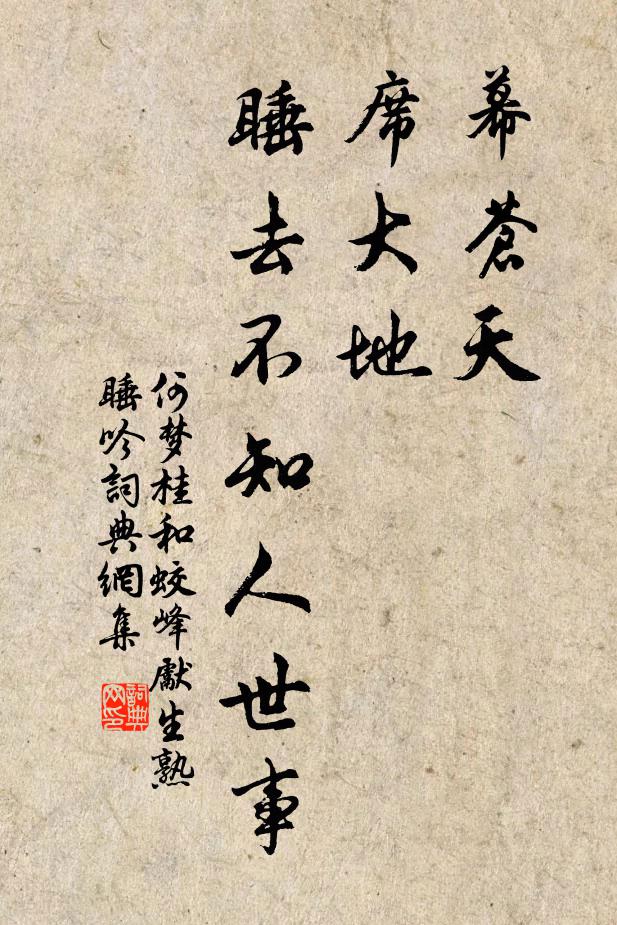 幕蒼天
席大地
睡去不知人世事
何梦桂和蛟峰獻生熟
睡吟詞典網集
詞典
网印